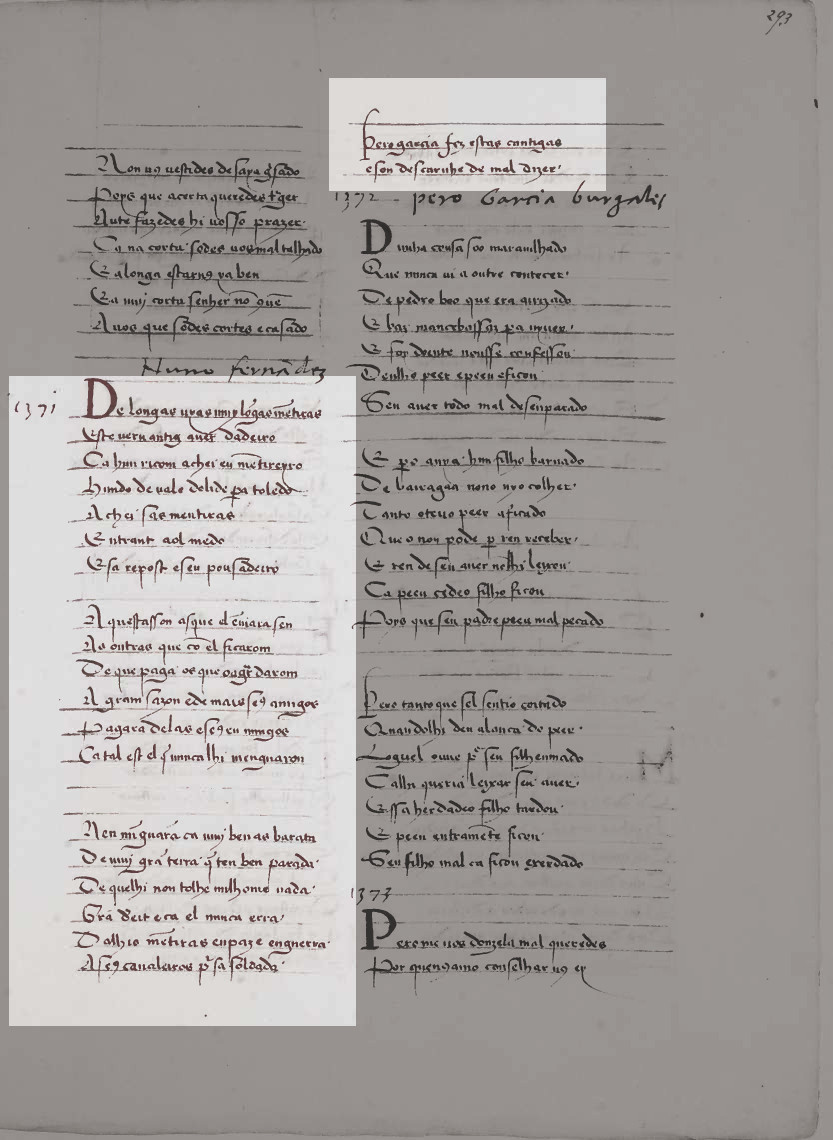 293
Non uos uestides de saya
Poys que acerta queredes
Aute fazedes hi uosso prazer
Ca na corta sodes uos mal talhado
E a longa estarus ya ben
Ca muj corta senher nō
A uos que sodes cortes e casado
Nuno fernādez
1371
De longas uyas muj lōgas mētiras
Este
Ca hun ricom achei eu mētireyro
hindo de ualo delide pa toledo
Achei sas mentiras
Entrant aol medo
E sa repost e seu pousadeiro
Aquestas son as que el ēuiara sen
As outras que cō el ficarom
De que paga os que darom
A gram sazon e de mais se9 amigos
Pagara delas e se9 eu mijgos
Ca tal est el nunca lhi menguaron
Nen mīguarā ca muj ben as barata
De muj grā terra q̄ ten ben parada
De quelhi non tolhe nulhome nada
Grā e ca el nunca erra
Dalhis mētiras en paz e en guerra
A se9 caualeiros pr sa soldada
Pero garcia fez estas cantigas
e son descarnhe de mal dizer
1372 pero Garcia burgales
Dunha cousa soo marauilhado
Que nunca ui a outre contecer
De pedro boo que era
E bar mancebo pa uyuer
E foy doente
Deulho peer e peeu e ficou
Seu auer todo mal desenparado
E pero auya hun filho baruado
De bairagaa nono uyo colher
Tanto oteuo peer aficado
Que o non pode per ren receber
E ren de seu auer nō lhi leyxou
Ca peeu cedeo filho ficou
Poys que seu padre peeu mal pecado
Pero tanto que sel sentio coitado
Quandolhi deu alança do peer
Loguel ouue pr seu filh enuiado
Calhi queria leixar seu auer
E ssa herdade o filho tardou
E peeu entramēte ficou
Seu filho mal ca ficou exerdado
1373
Pero me uos donzela mal queredes
Por